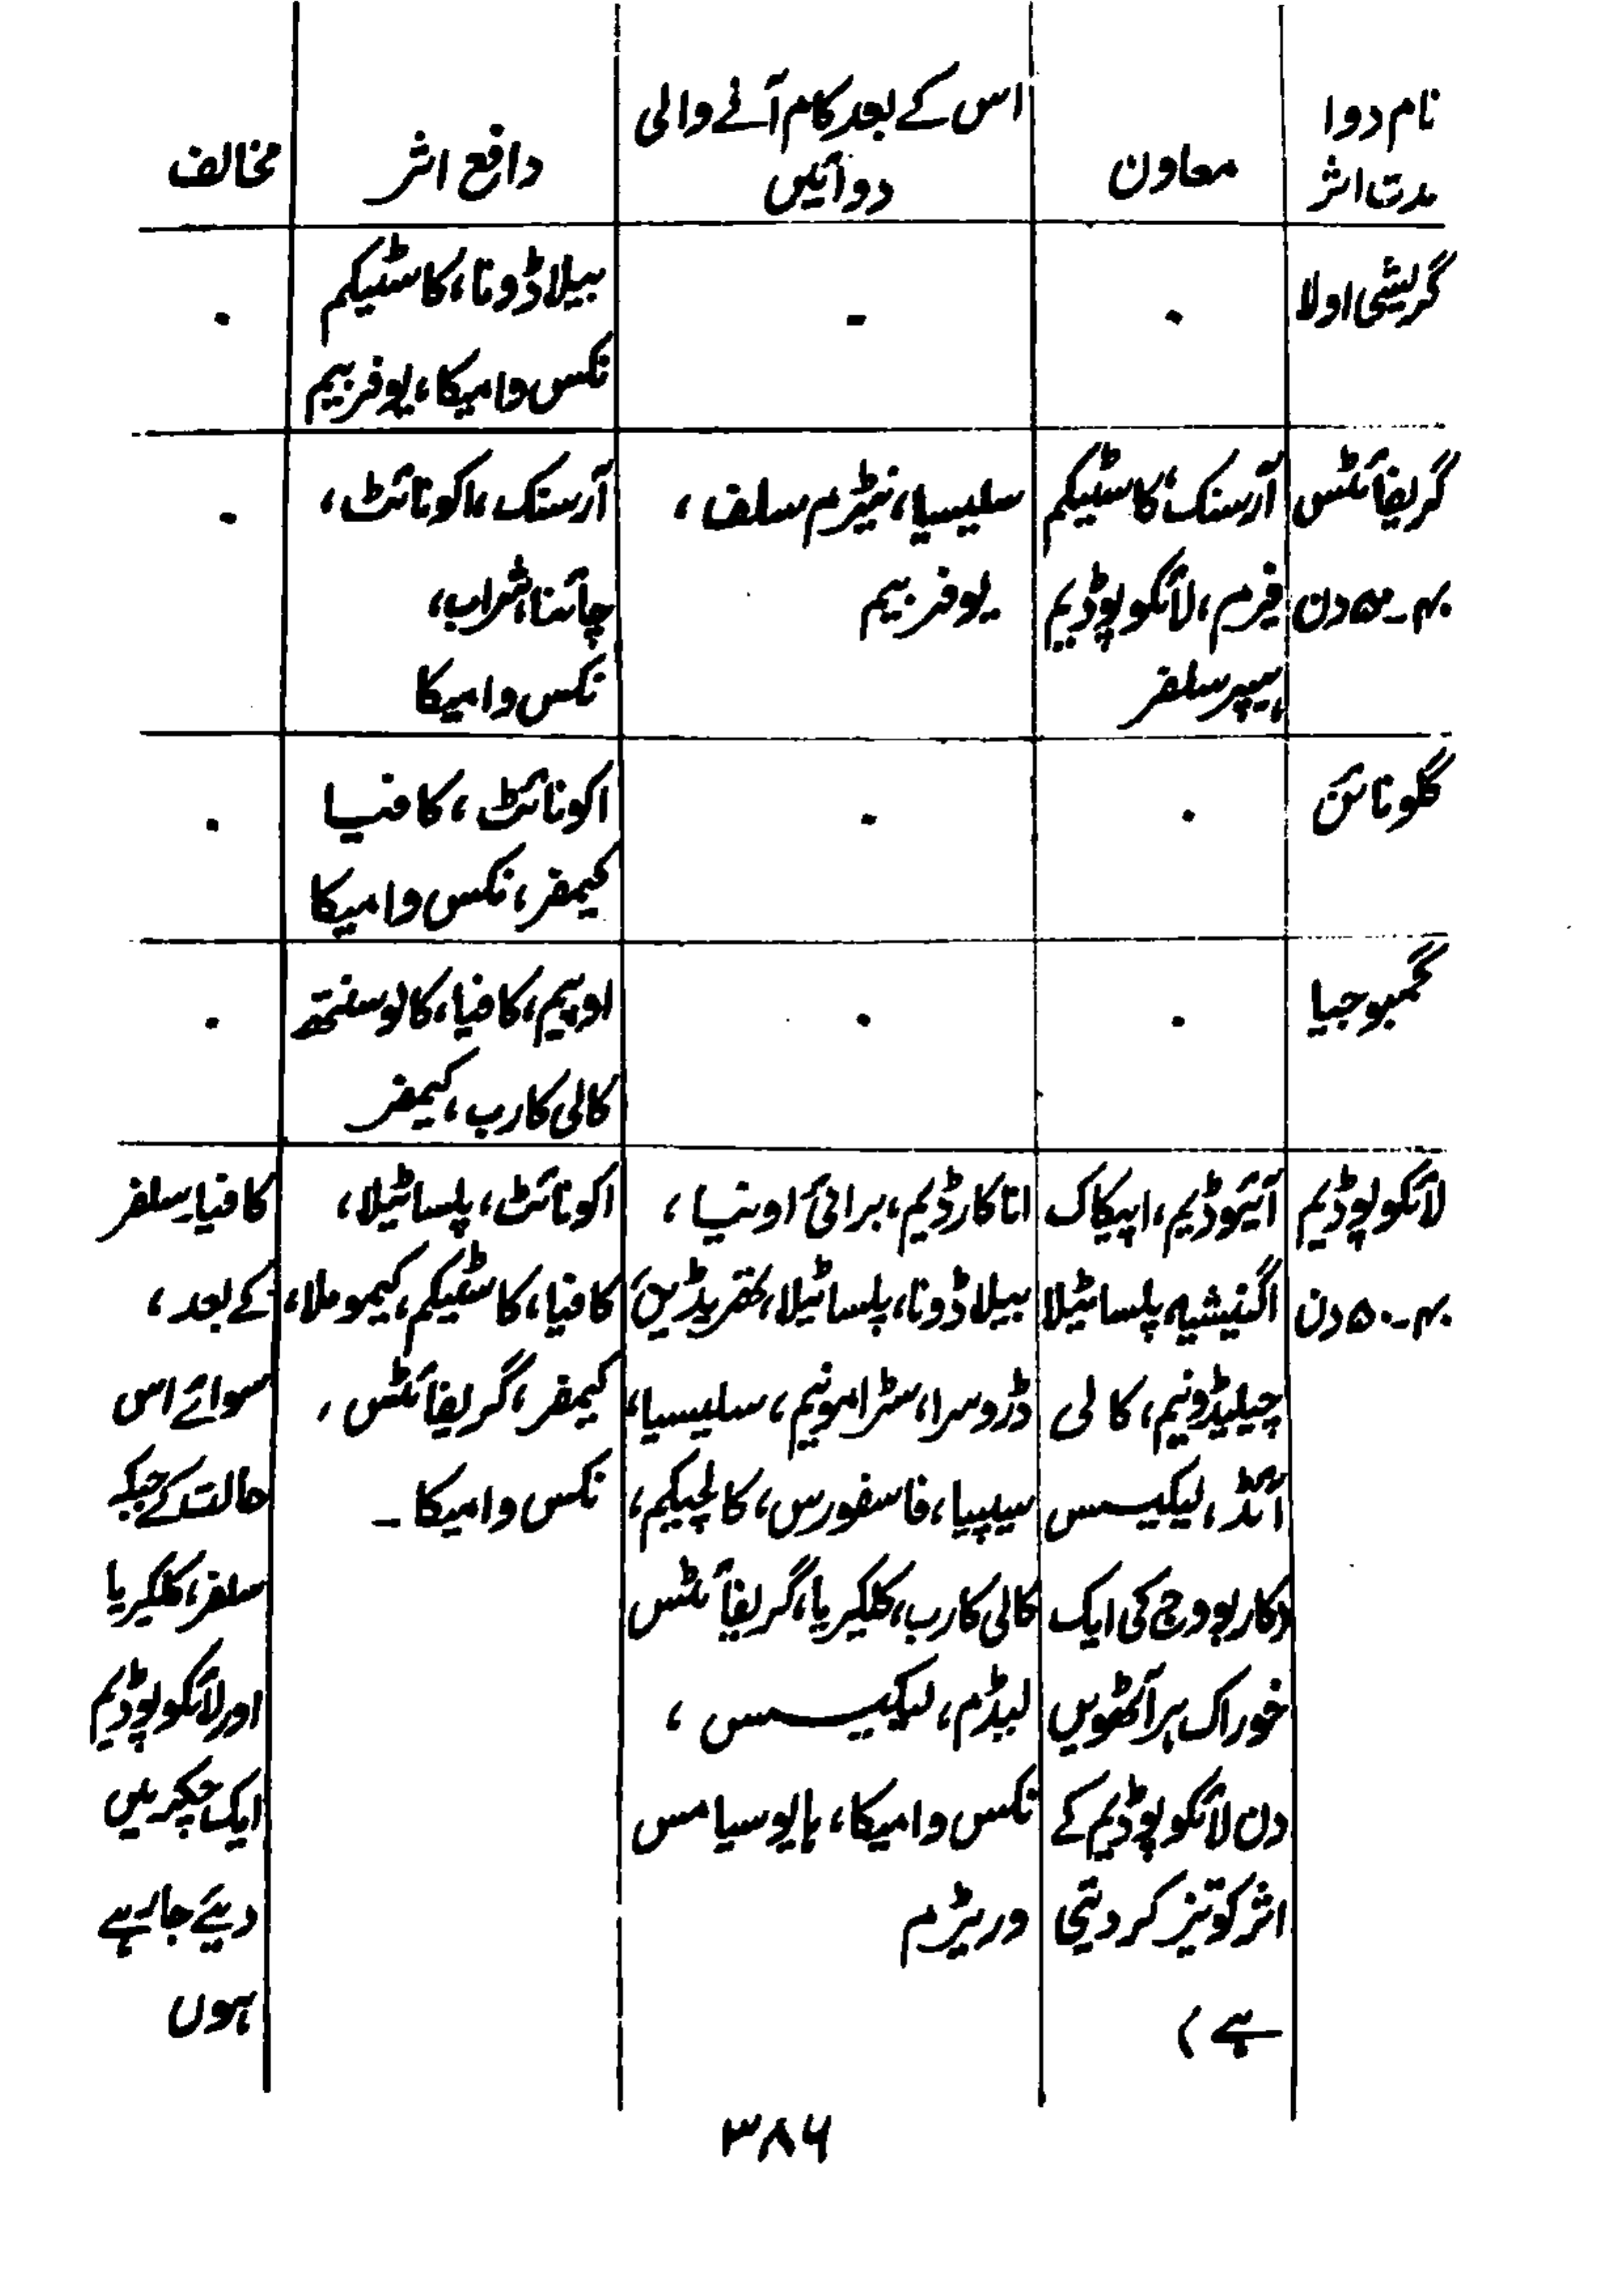 نام دوا
مدت اثر
معاون
اس کے بعد کام آنے والی
دوائیں
دافع اثر
مخالف
گریشی اولا
۰
-
بیلا ڈونا، کاسٹیکم
نکس وامیکا، یوفربیم
۰
گریفائٹس
۴۰-۵۰ دن
آرسنک، کاسٹیکم
فیرم، لائکوپوڈیم
ہیپر سلفر
سلیسیا، نیٹرم سلف،
یوفربیم
آرسنک، اکونائٹ،
چائنا، شراب،
نکس وامیکا
-
گلونائن
۰
۰
اکونائٹ، کافیا
کیمفر، نکس وامیکا
۰
گمبوجیا
۰
۰
اوپیم، کافیا، کالوسنتھ
کالی کارب، کیمفر
۰
لائکوپوڈیم
۴۰-۵۰ دن
آئیوڈیم، اپیکاک
اگنیشیہ، پلساٹیلا
چیلیڈونیم، کالی
آئڈ، لیکیسس
(کاربووج کی ایک
خوراک ہر آٹھویں
دن لائکوپوڈیم کے
اثر کو تیز کر دیتی
ہے)
اناکارڈیم، برائی اونیا،
بیلا ڈونا، پلساٹیلا، تھریڈین
ڈروسرا، سٹرامونیم، سلیسیا،
سیپیا، فاسفورس، کالچیکم،
کالی کارب، کلکیریا، گریفائٹس
لیڈم، لیکیسس،
نکس وامیکا، ہایوسیامس
وریٹرم
اکونائٹ، پلساٹیلا،
کافیا، کاسٹیکم، کیموملا،
کیمفر، گریفائٹس،
نکس وامیکا۔
کافیا، سلفر
کے بعد،
سوائے اس
حالت کے جبکہ
سلفر، کلکیریا
اور لائکوپوڈیم
ایک چکر میں
دیئے جا رہے
ہوں
۳۸۶